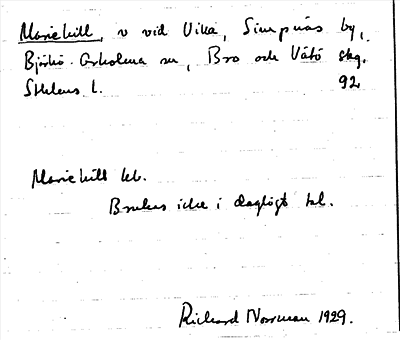 Mariehill, v vid Vika, Simpnäs by,
Björkö-Arholma sn, Bro och Vätö skg.
Sthlms l. 92
Mariehill
Brukas icke i dagligt tal.
Richard Norrman 1929.